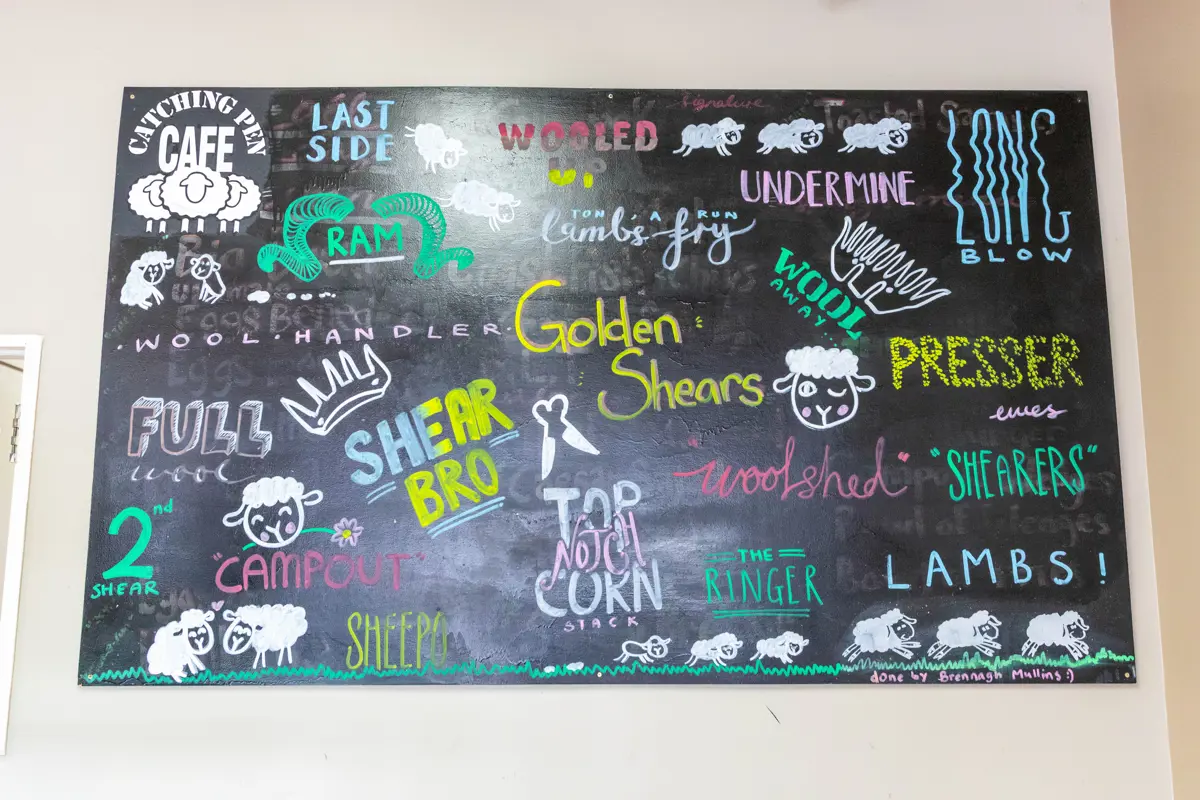 CATCHING PEN
CAFE
LAST
SIDE
WOOLED
UP
signature
Toasted
UNDERMINE
LONG
BLOW
RAM
TON 'A RUN
lambs fry
WOOL
AWAY
·WOOL·HANDLER·
Eggs
Golden
Shears
PRESSER
ewes
FULL
wool
SHEAR
BRO
"woolshed"
"SHEARERS"
2nd
SHEAR
"CAMPOUT"
TOP
NOTCH
CORN
STACK
THE
RINGER
LAMBS!
SHEEPO
done by Brennagh Mullins :)